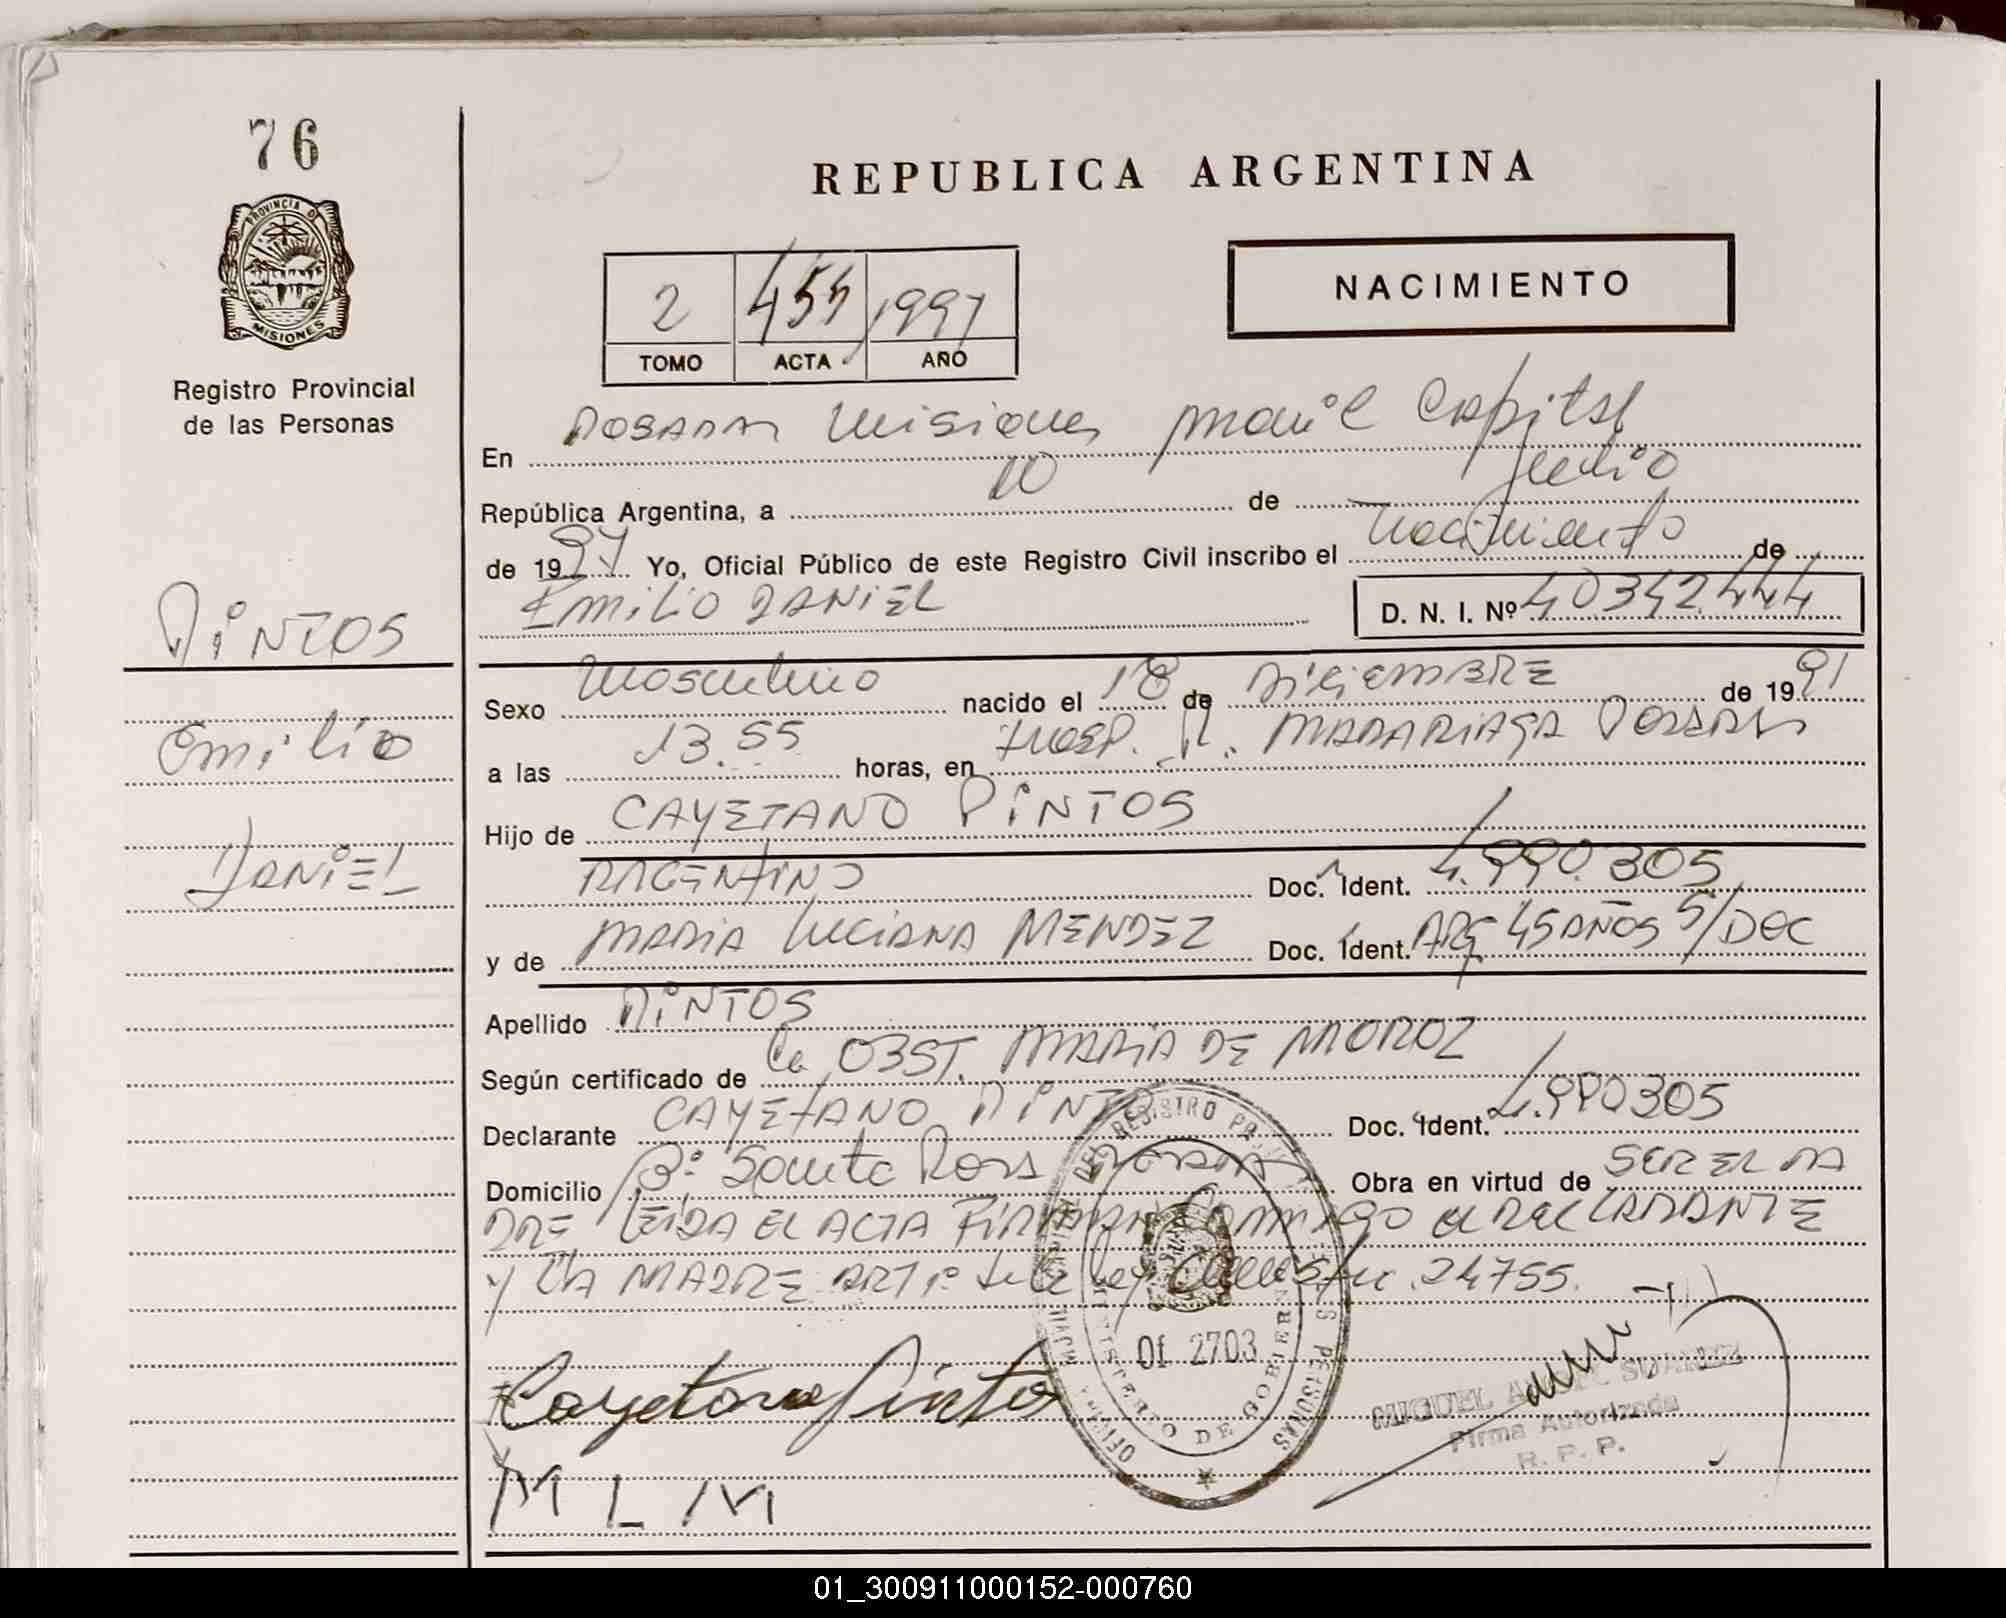 76
PROVINCIA DE
MISIONES
Registro Provincial
de las Personas
PINTOS
Emilio
DANiEL
REPUBLICA ARGENTINA
NACIMIENTO
2 455 1997
TOMO ACTA AÑO
En POSADAS Misiones Capital
República Argentina, a 10 de Julio
de 1997 Yo, Oficial Público de este Registro Civil inscribo el Nacimiento de
EMiLiO DANiEL D. N. I. Nº 40342444
Sexo Masculino nacido el 18 de DiCiEMBRE de 1991
a las 13.55 horas, en Hosp. R. MADARiAGA POSADAS
Hijo de CAYETANO PiNTOS
ARGENTINO Doc. Ident. 4.990.305
y de MARiA LUCiANA MENDEZ Doc. Ident. ARG 45 AÑOS S/DOC
Apellido PiNTOS
Según certificado de la OBST. MARiA DE MOROZ
Declarante CAYETANO PiNTOS Doc. Ident. 4.990305
Domicilio Bº Santa Rosa POSADAS Obra en virtud de SER EL PA
DRE LEiDA EL ACTA FiRMAN CONMIGO el DECLARANTE
y LA MADRE ART 1º de la ley 24755.
Cayetano Pintos
M L M
OFICINA DEL REGISTRO PERSONAS
MINISTERIO DE GOBIERNO
Of 2703
MIGUEL ANGEL SUAREZ
Firma Autorizada
R. P. P.
01_300911000152-000760